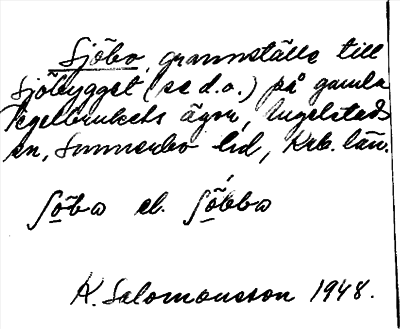 Sjöbo, grannställe till
Sjöbygget (se d.o.) på gamla
Tegelbrukets ägor, Ingelstads
sn, Sunnerbo hd, Krb. län.
ʃöba el. ʃöbba
K. Salomonsson 1948.